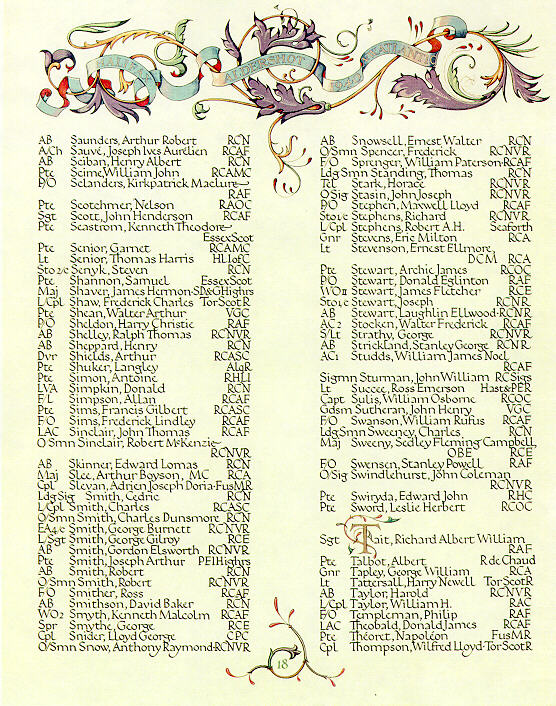 HALIFAX ALDERSHOT ATLANTIC
AB Saunders, Arthur Robert RCN
A/Ch Sauvé, Joseph Ives Aurélien RCAF
AB Sciban, Henry Albert RCN
Pte Scime, William John RCAMC
P/O Selanders, Kirkpatrick Maclure-
RAF
Pte Scotchmer, Nelson RAOC
Sgt Scott, John Henderson RCAF
Pte Seastrom, Kenneth Theodore-
Essex Scot
Pte Senior, Garnet RCAMC
Lt Senior, Thomas Harris HLIofC
Sto2/c Senyk, Steven RCN
Pte Shannon, Samuel Essex Scot
Maj Shaver, James Hermon-SD&GHighrs
L/Cpl Shaw, Frederick Charles Tor Scot R
Pte Shean, Walter Arthur VGC
P/O Sheldon, Harry Christie RAF
AB Shelley, Ralph Thomas RCNVR
AB Sheppard, Henry RCN
Dvr Shields, Arthur RCASC
Pte Shuker, Langley AlqR
Pte Simon, Antoine RHLI
LVA Simpkin, Donald RCN
F/L Simpson, Allan RCAF
Pte Sims, Francis Gilbert RCASC
F/O Sims, Frederick Lindley RCAF
LAC Sinclair, John Thomas RCAF
O Smn Sinclair, Robert McKenzie-
RCNVR
AB Skinner, Edward Lomas RCN
Maj Slee, Arthur Boyson, MC RCA
Cpl Slevan, Adrien Joseph Doria-FusMR
Ldg Sig Smith, Cedric RCN
L/Cpl Smith, Charles RCASC
O/Smn Smith, Charles Dunsmore RCN
EA4/c Smith, George Burnett RCNVR
L/Sgt Smith, George Gilroy RCE
AB Smith, Gordon Elsworth RCNVR
Pte Smith, Joseph Arthur PEIHighrs
AB Smith, Robert RCN
O/Smn Smith, Robert RCNVR
F/O Smither, Ross RCAF
AB Smithson, David Baker RCN
WO2 Smyth, Kenneth Malcolm RCAF
Spr Smythe, George RCE
Cpl Snider, Lloyd George CPC
O/Smn Snow, Anthony Raymond-RCNVR
AB Snowsell, Ernest Walter RCN
O/Smn Spencer, Frederick RCNVR
F/O Sprenger, William Paterson-RCAF
Ldg Smn Standing, Thomas RCN
Tel Stark, Horace RCNVR
O Sig Stasin, John Joseph RCNVR
P/O Stephen, Maxwell Lloyd RCAF
Sto1/c Stephens, Richard RCNVR
L/Cpl Stephens, Robert A.H. Seaforth
Gnr Stevens, Eric Milton RCA
Lt Stevenson, Ernest Ellmore,
DCM RCA
Pte Stewart, Archie James RCOC
P/O Stewart, Donald Eglinton RAF
WOII Stewart, James Fletcher RCE
Sto1/c Stewart, Joseph RCNR
AB Stewart, Laughlin Ellwood-RCNR
AC2 Stocken, Walter Frederick RCAF
S/Lt Strathy, George RCNVR
AB Strickland, Stanley George RCNR
AC1 Studds, William James Noel
RCAF
Sigmn Sturman, John William RC Sigs
Lt Succee, Ross Emerson Hast&PER
Capt Sulis, William Osborne RCOC
Gdsm Sutheran, John Henry VGC
F/O Swanson, William Rufus RCAF
Ldg Smn Sweeney, Charles RCN
Maj Sweeny, Sedley Fleming Campbell,
OBE RCE
F/O Swensen, Stanley Powell RAF
O/Sig Swindlehurst, John Coleman
RCNVR
Pte Swiryda, Edward John RHC
Pte Sword, Leslie Herbert RCOC
Sgt Tait, Richard Albert William
RAF
Pte Talbot, Albert R de Chaud
Gnr Tapley, George William RCA
Lt Tattersall, Harry Newell Tor Scot R
AB Taylor, Harold RCNVR
L/Cpl Taylor, William H. RAC
F/O Templeman, Philip RAF
LAC Theobald, Donald James RCAF
Pte Théoret, Napoléon FusMR
Cpl Thompson, Wilfred Lloyd-Tor Scot R
18